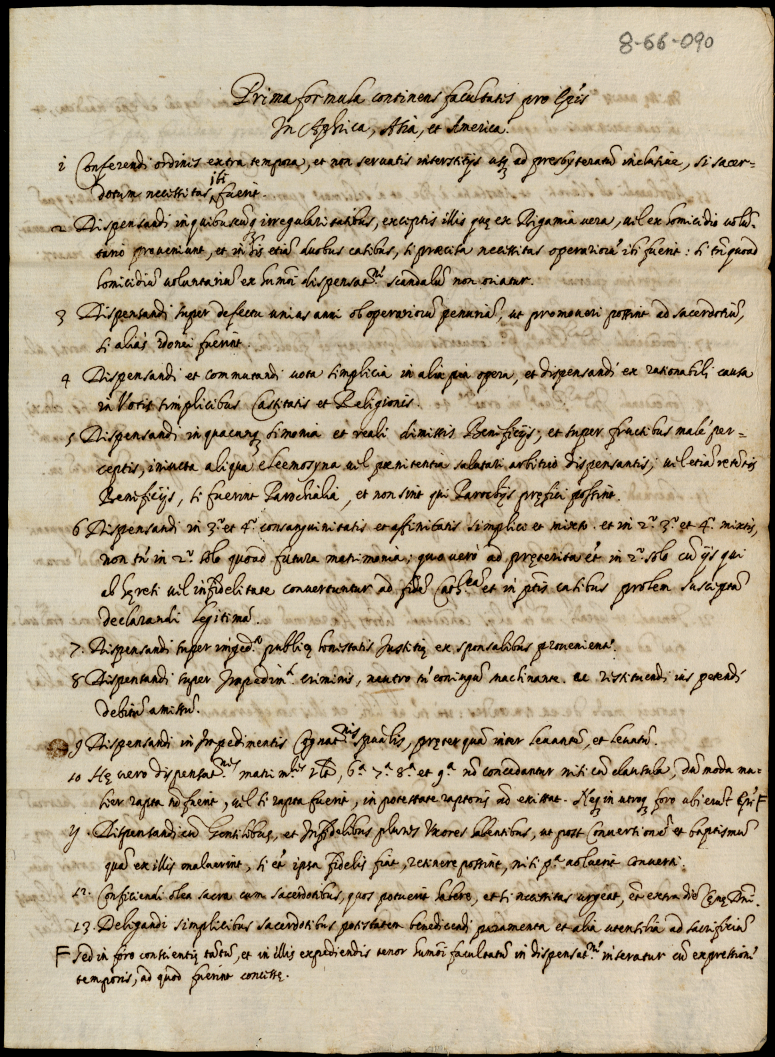 8-66-090
Prima formula continens facultates pro Epis
In Aphrica, Asia, et America.
1 Conferendi ordines extra tempora, et non servatis interstitijs usq ad presbyteratum inclusive, si sacer-
dotum necessitas ibi fuerit.
2 Dispensandi in quibuscunq irregularitatibus, exceptis illis quę ex Bigamia vera, vel ex homicidio volū-
tario proveniunt, et in his etiā duobus casibus, si præcisa necessitas operariorū ibi fuerit: si tn quoad
homicidiū voluntariū ex humōi dispensatne scandalū non oriatur.
3 Dispensandi super defectu unius anni ob operariorū penuriā, ut promoveri possint ad sacerdotiū,
si aliàs idonei fuerint.
4 Dispensandi et commutandi vota simplicia in alia pia opera, et dispensandi ex rationabili causa
in Votis simplicibus Castitatis et Religionis.
5 Dispensandi in quacunq simonia et reali dimissis Beneficijs, et super fructibus malè per-
ceptis, iniuncta aliqua eleemosyna vel pœnitentia salutari arbitrio dispensantis, vel etiā retentis
Beneficijs, si fuerint Parochialia, et non sint qui Parochijs pręfici possint.
6 Dispensandi in 3º et 4º consanguinitatis et affinitatis simplici et mixto. et in 2º 3º et 4º mixtis,
non tn in 2º solo quoad futura matrimonia; quo vero ad pręterita et in 2º solo cū ijs qui
ab hęresi vel infidelitate convertuntur ad fidē Cathcā et in ptis casibus prolem susceptā
declarandi legitimā.
7. Dispensandi super impedto publicę honestatis Justitię ex sponsalibus proveniens.
8 Dispensandi super Impedimto criminis, neutro tn coniugū machinante. ac restituendi ius petendi
debitū amissū.
9 Dispensandi in Impedimentis Cognatnis spūalis, pręterquā inter levantē, et levatū.
10 Hę vero dispensatnes matrimles 6ª 7ª 8ª et 9ª nō concedantur nisi cū clausula, Dū modo mu-
lier rapta nō fuerit, vel si rapta fuerit, in potestate raptoris nō existat. Neq in utroq foro ubi erunt Epi F
11 Dispensandi cū Gentilibus, et Infidelibus plures Uxores habentibus, ut post Conversionē et baptismū
quā ex illis maluerint, si et ipsa fidelis fiat, retinere possint, nisi pª noluerit converti.
12. Conficiendi olea sacra cum sacerdotibus, quos potuerit habere, et si necessitas urgeat, et extra diē Cenę Dnī.
13. Delegandi simplicibus sacerdotibus potestatem benedicendi paramenta et alia utensilia ad sacrificiū
F sed in foro conscientię tantū, et in illis expediendis tenor humōi facultatū in dispensatne inseratur cū expressione
temporis, ad quod fuerint concessę.